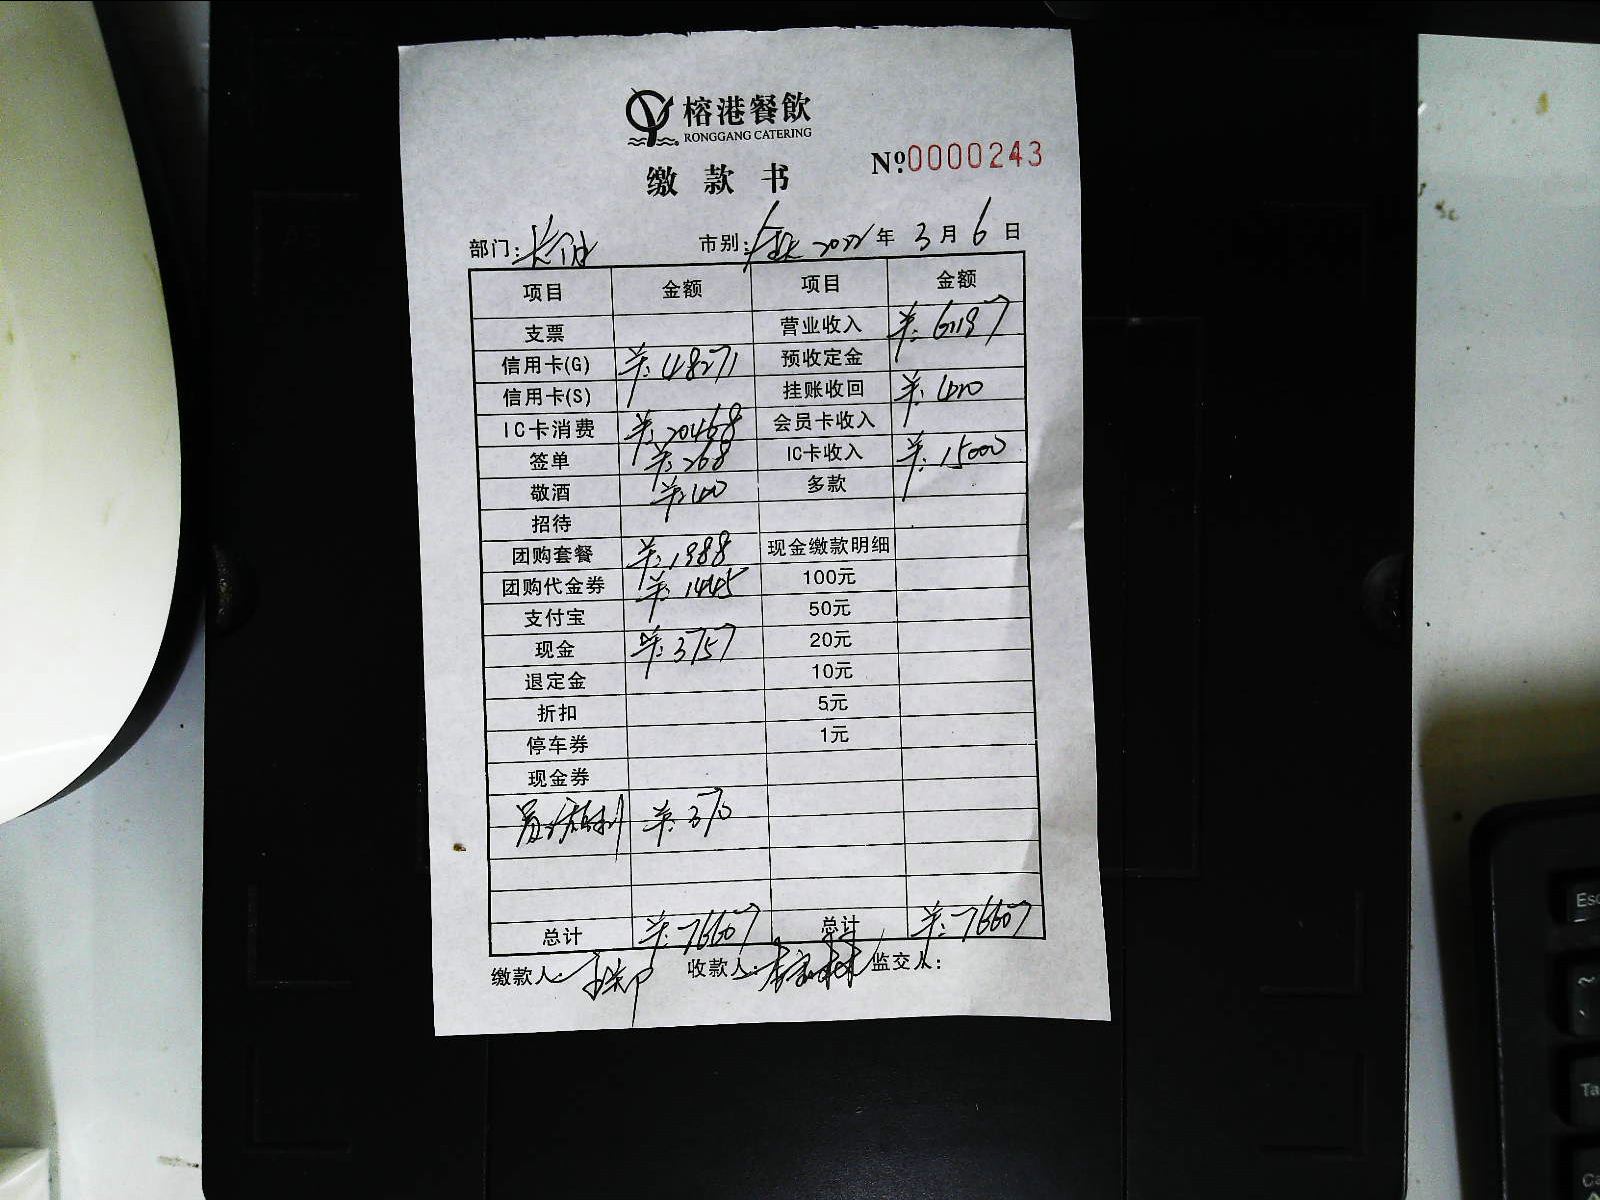 榕港餐飲
RONGGANG CATERING
缴款书
№0000243
部门: 市别:全天 2022年 3月 6日
项目 金额 项目 金额
支票 营业收入 ¥:61197
信用卡(G) ¥:48271 预收定金
信用卡(S) 挂账收回 ¥:410
IC卡消费 ¥:20468 会员卡收入
签单 ¥:268 IC卡收入 ¥:15000
敬酒 ¥:40 多款
招待
团购套餐 ¥:1988 现金缴款明细
团购代金券 ¥:1445 100元
支付宝 50元
现金 ¥:3757 20元
退定金 10元
折扣 5元
停车券 1元
现金券
员工福利 ¥:370
总计 ¥:76607 总计 ¥:76607
缴款人: 收款人: 监交人:
Esc
~